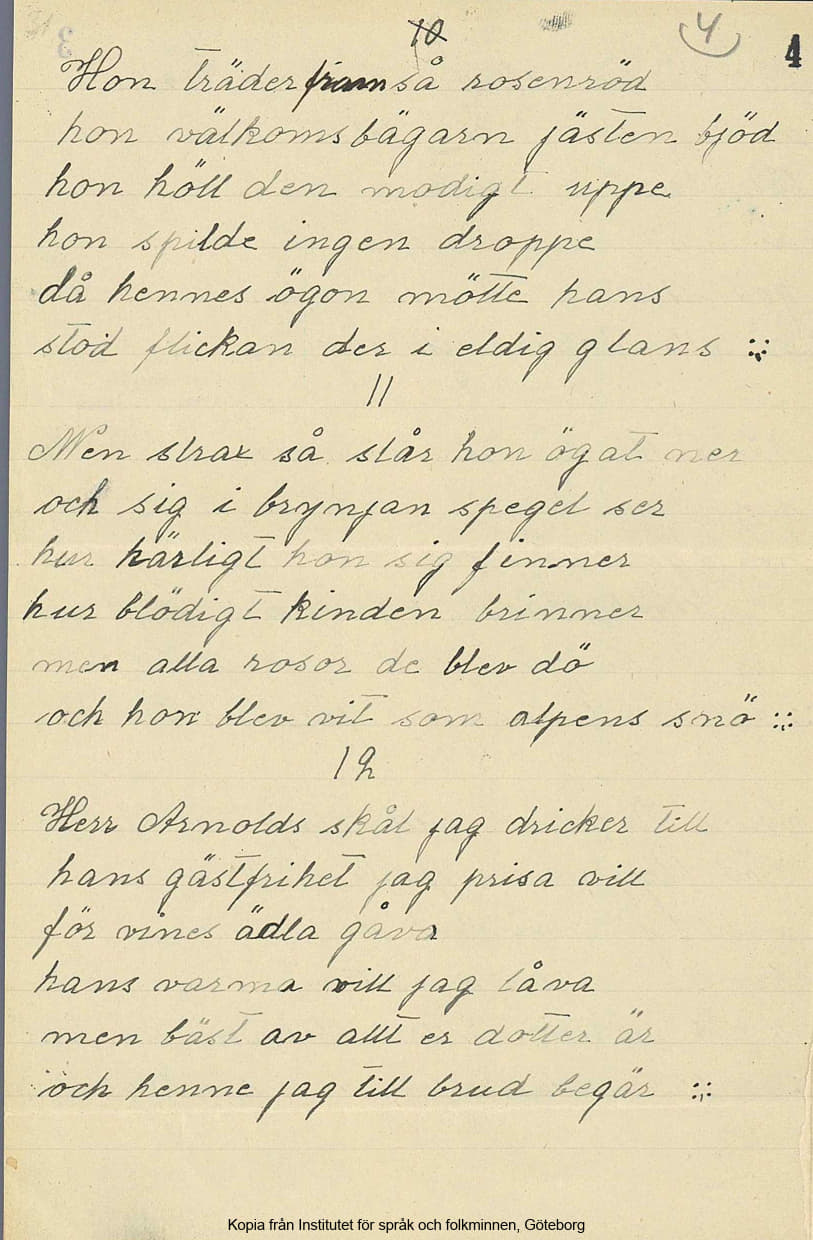 10
4
4
Hon träder fram så rosenröd
hon välkomsbägarn jästen bjöd
hon höll den modigt uppe
hon spilde ingen droppe
då hennes ögon mötte hans
stod flickan der i eldig glans :,:
11
Men strax så slår hon ögat ner
och sig i brynjan spegel ser
hur härligt hon sig finner
hur blödigt kinden brinner
men alla rosor de blev dö
och hon blev vit som alpens snö :,:
12
Herr Arnolds skål jag dricker till
hans gästfrihet jag prisa vill
för vines ädla gåva
hans varma vill jag låva
men bäst av allt er dotter är
och henne jag till brud begär :,:
Kopia från Institutet för språk och folkminnen, Göteborg